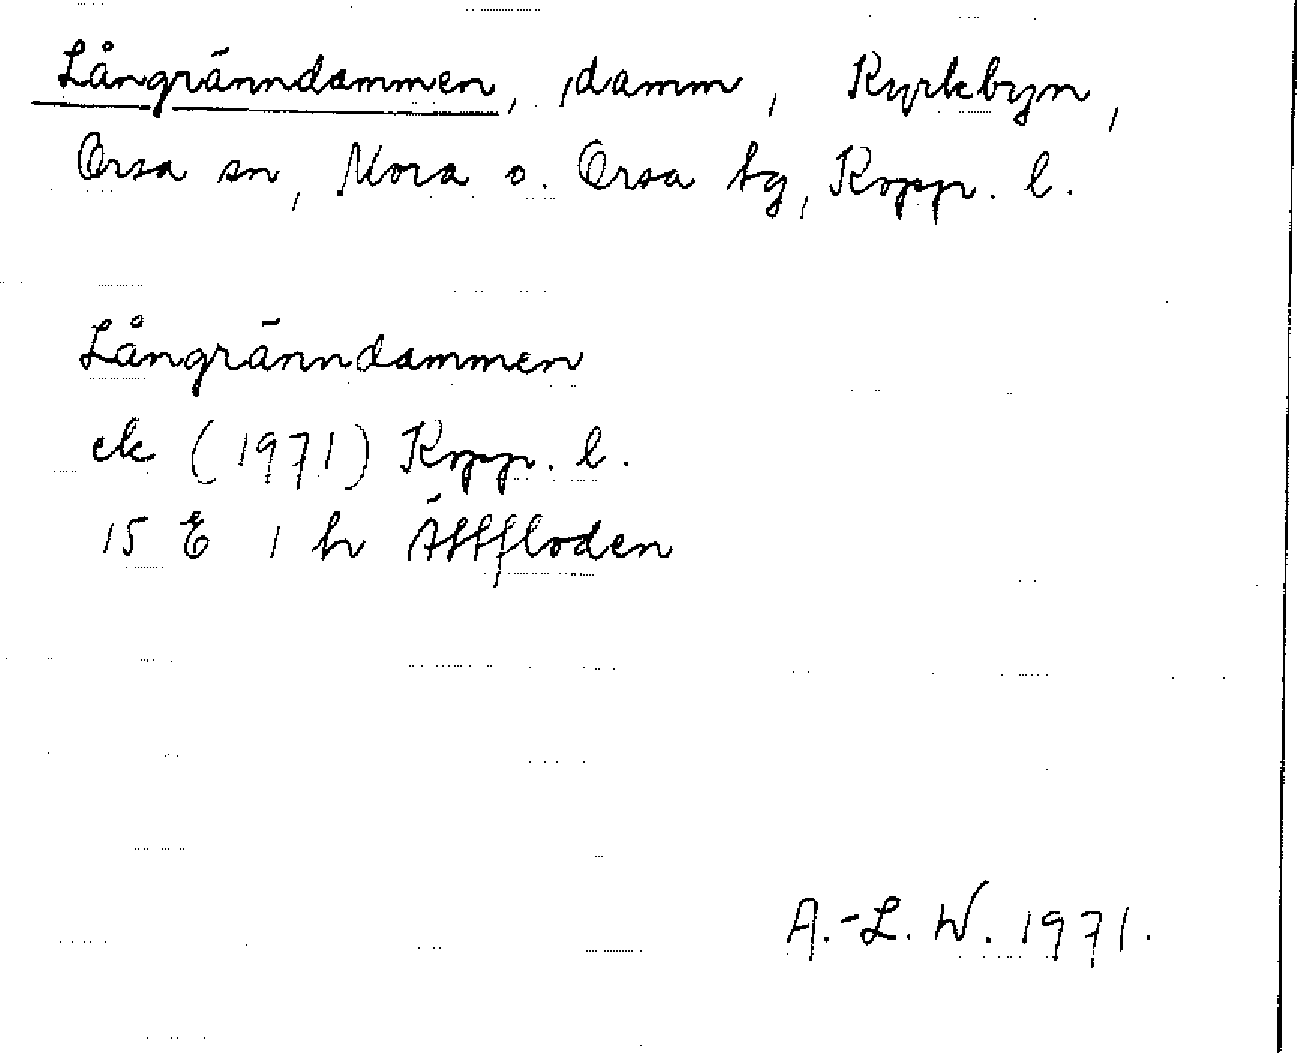 Långränndammen, damm, Kyrkbyn,
Orsa sn, Mora o. Orsa tg, Kopp. l.
Långränndammen
ek (1971) Kopp. l.
15 E 1 h Ättfloden
A.-L. W. 1971.